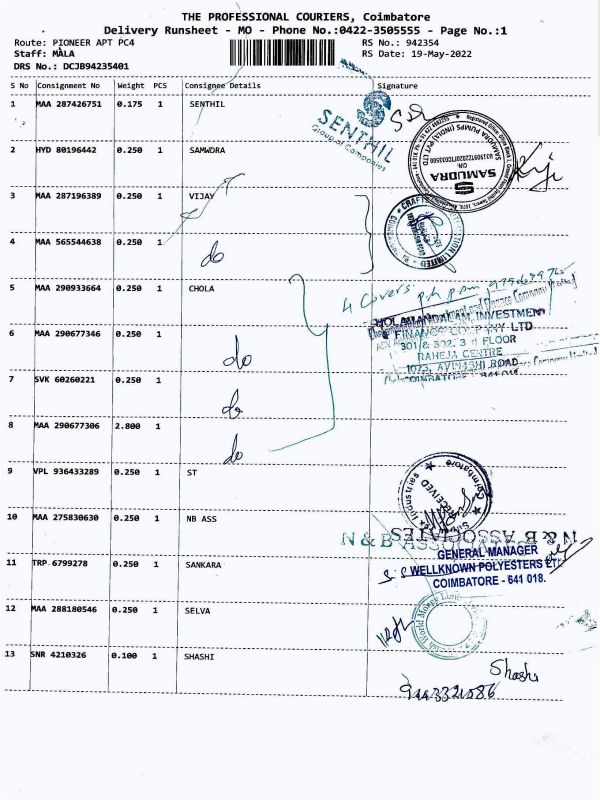 THE PROFESSIONAL COURIERS, Coimbatore
Delivery Runsheet - MO - Phone No.:0422-3505555 - Page No.:1
Route: PIONEER APT PC4 RS No.: 942354
Staff: MALA RS Date: 19-May-2022
DRS No.: DCJB94235401
S No Consignment No Weight PCS Consignee Details Signature
1 MAA 287426751 0.175 1 SENTHIL
SENTHIL
Group of Companies
2 HYD 80196442 0.250 1 SAMWDRA
SAMUDRA PUMPS (INDIA) PVT LTD
SAMUDRA
3 MAA 287196389 0.250 1 VIJAY
4 MAA 565544638 0.250 1
do
5 MAA 290933664 0.250 1 CHOLA
4 Covers
CHOLAMANDALAM INVESTMENT
& FINANCE COMPANY LTD
301 & 302, 3rd FLOOR
RAHEJA CENTRE
1073, AVINASHI ROAD
COIMBATORE - 641 018.
6 MAA 290677346 0.250 1
do
7 SVK 60260221 0.250 1
do
8 MAA 290677306 2.800 1
do
9 VPL 936433289 0.250 1 ST
Industries
Coimbatore
RECEIVED
10 MAA 275830630 0.250 1 NB ASS
N & B ASSOCIATES
N & B ASSOCIATES
11 TRP 6799278 0.250 1 SANKARA
GENERAL MANAGER
WELLKNOWN POLYESTERS LTD
COIMBATORE - 641 018.
12 MAA 288180546 0.250 1 SELVA
13 SNR 4210326 0.100 1 SHASHI
Shashi
9443321086